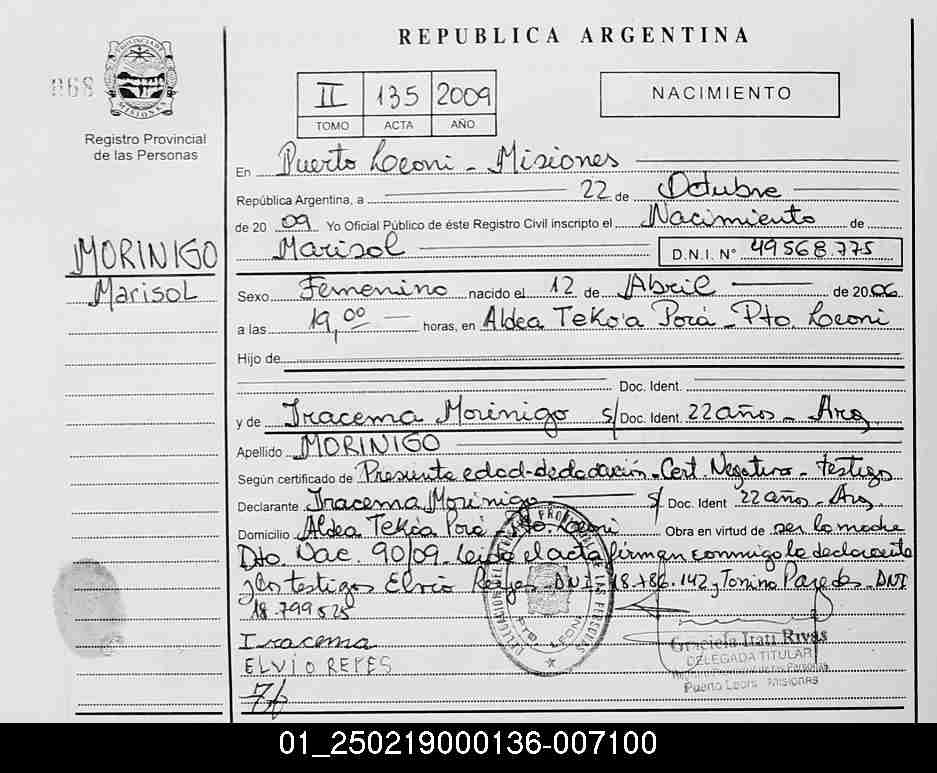 REPUBLICA ARGENTINA
068
PROVINCIA DE MISIONES
Registro Provincial
de las Personas
II 135 2009
TOMO ACTA AÑO
NACIMIENTO
En Puerto Leoni - Misiones
República Argentina, a 22 de Octubre
de 20 09 Yo Oficial Público de éste Registro Civil inscripto el Nacimiento de
Marisol D.N.I. Nº 49568.775
MORINIGO
Marisol
Sexo Femenino nacido el 12 de Abril de 2006
a las 19,00 horas, en Aldea Teko'a Porá - Pto. Leoni
Hijo de
Doc. Ident.
y de Iracema Morinigo s/ Doc. Ident. 22 años - Arg.
Apellido MORINIGO
Según certificado de Presunta edad - declaración - Cert. Negativo - testigo
Declarante Iracema Morinigo s/ Doc. Ident 22 años - Arg
Domicilio Aldea Teko'a Porá Pto. Leoni Obra en virtud de ser la madre
Dto. Nac. 90/09. Leida el acta firman conmigo la declarante
y los testigos Elvio Reyes DNI 18.786.142 y Tonino Paredes - DNI
18.799525
Iracema
ELVIO REPES
PTO. LEONI
Graciela Itatí Rivas
DELEGADA TITULAR
Registro Provincial de las Personas
Puerto Leoni Misiones
01_250219000136-007100